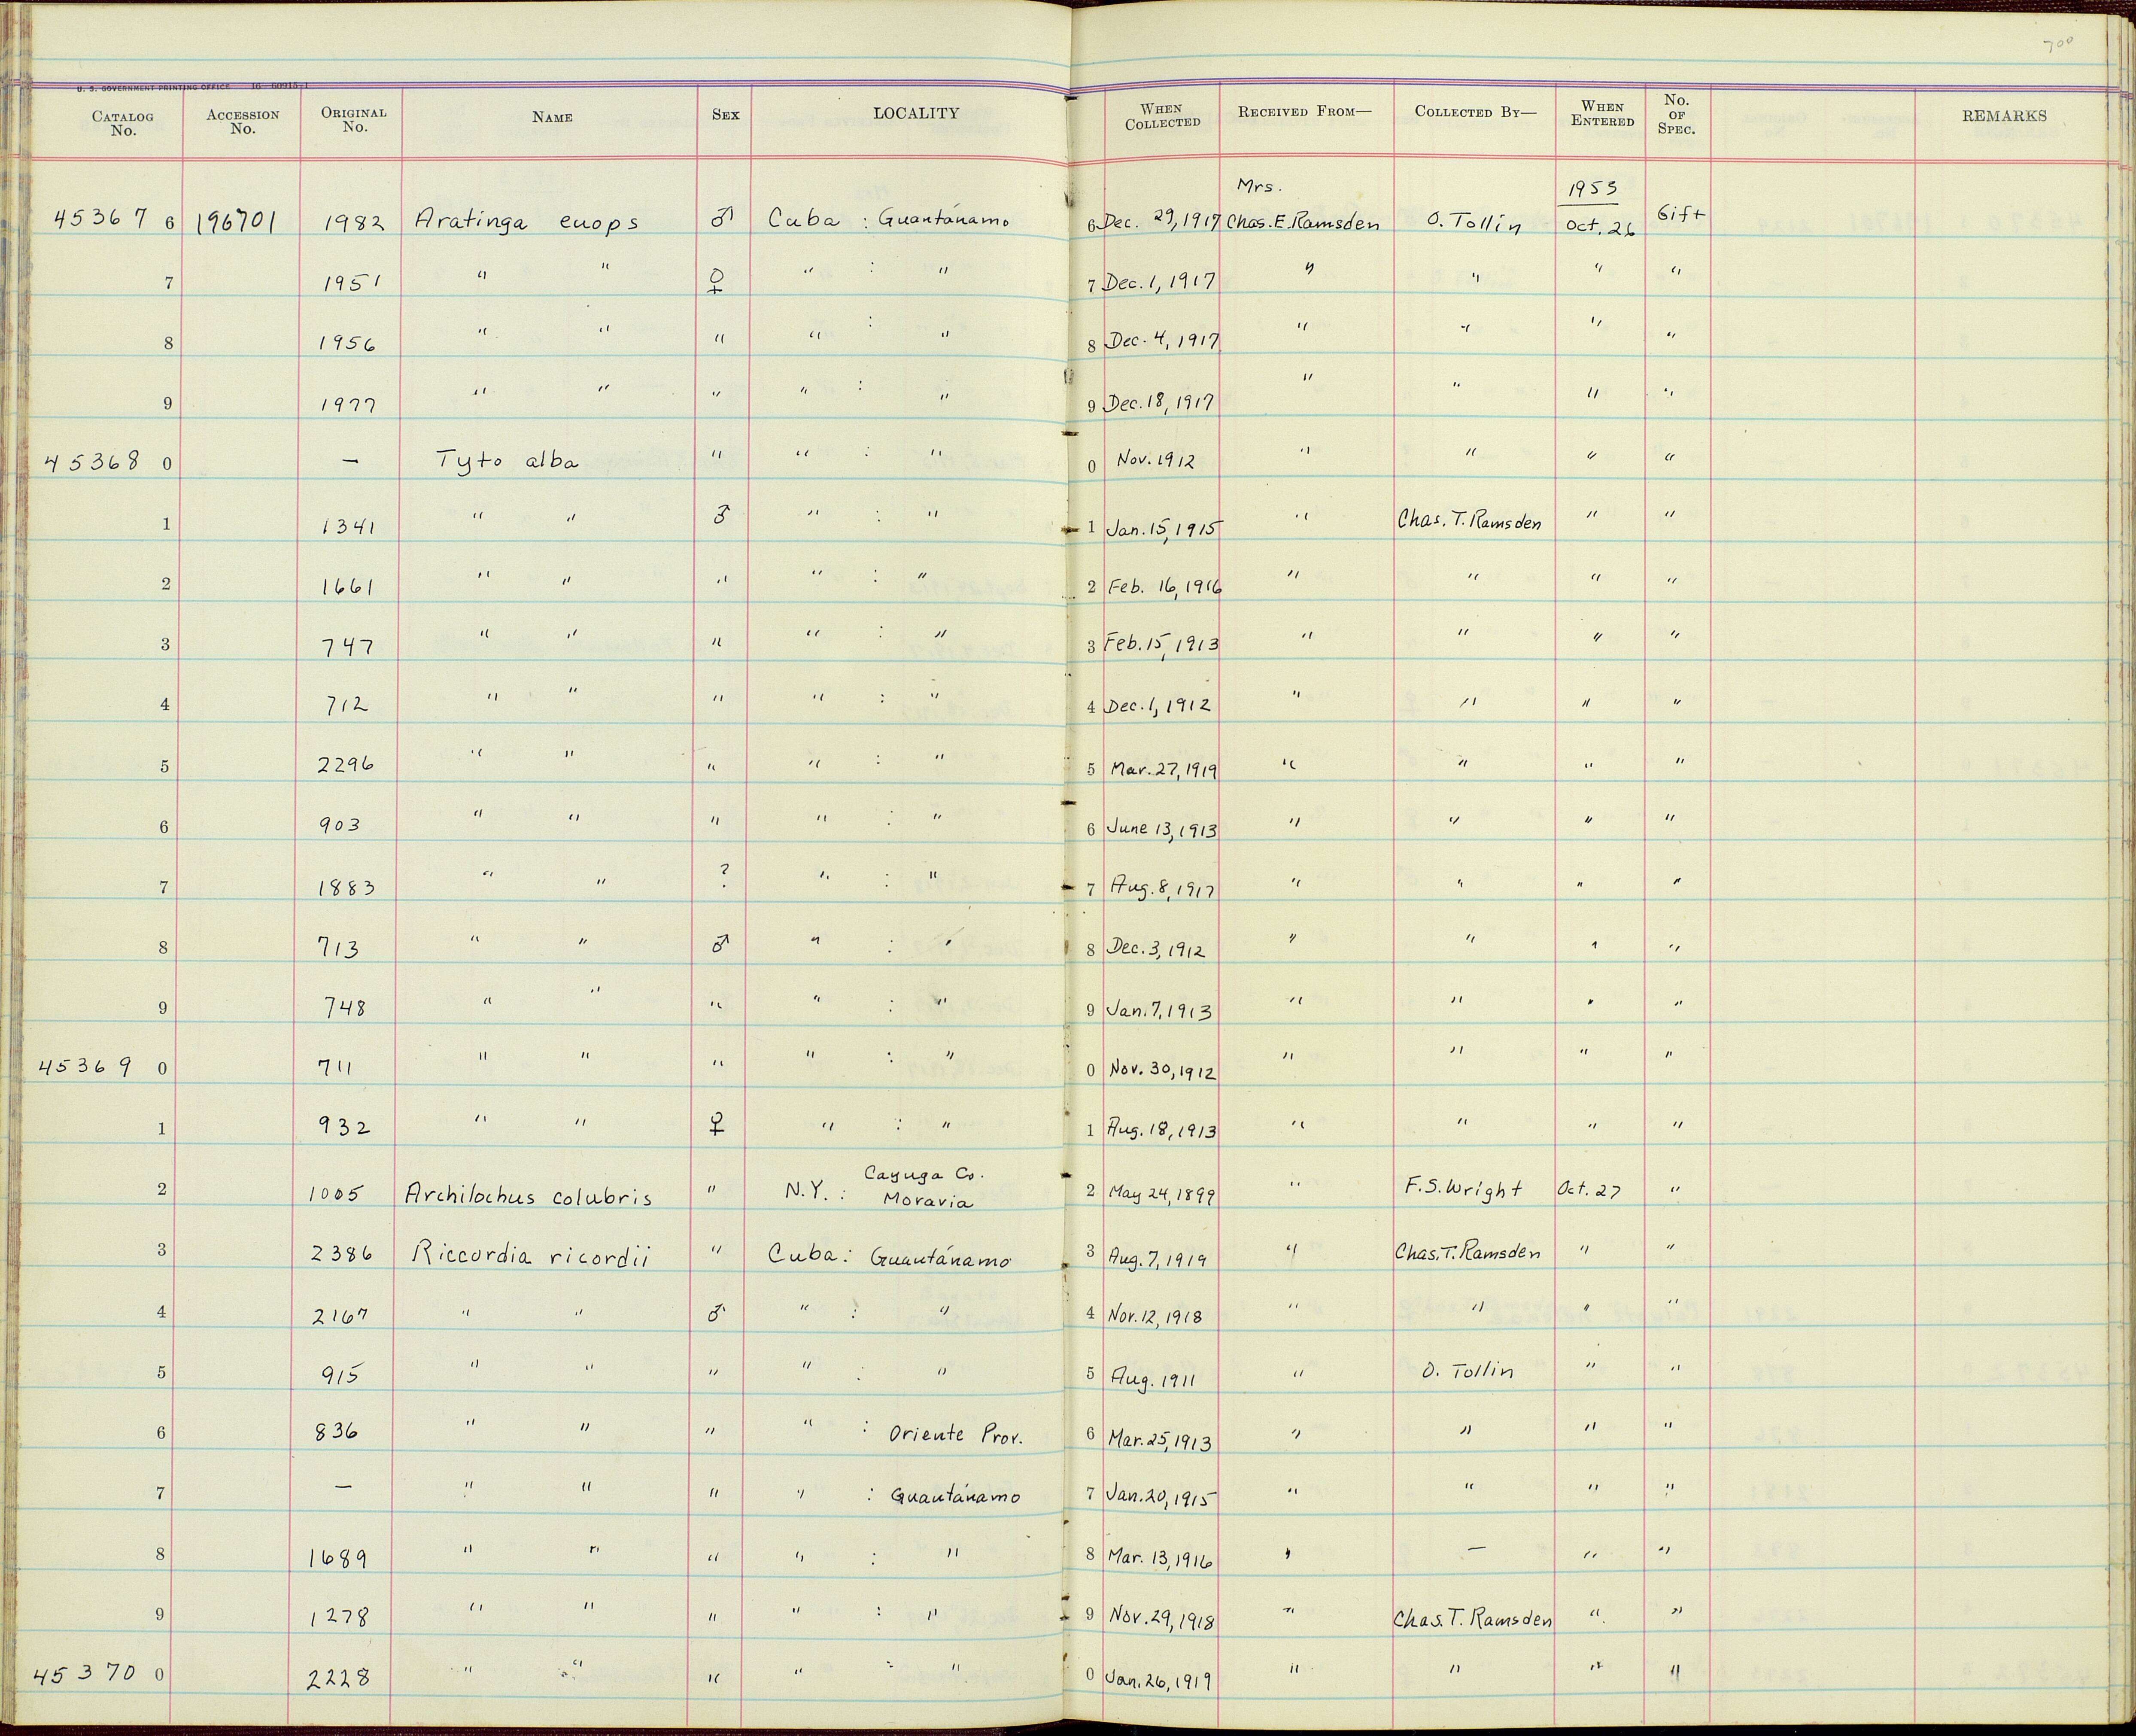 700
U. S. GOVERNMENT PRINTING OFFICE 16—60915-1
CATALOG No. ACCESSION No. ORIGINAL No. NAME SEX LOCALITY WHEN COLLECTED RECEIVED FROM— COLLECTED BY— WHEN ENTERED No. OF SPEC. REMARKS
45367 6 196701 1982 Aratinga euops ♂ Cuba : Guantánamo 6 Dec. 29, 1917 Mrs. Chas. E. Ramsden O. Tollin 1953 Oct. 26 Gift
7 1951 " " ♀ " : " 7 Dec. 1, 1917 " " " "
8 1956 " " " " : " 8 Dec. 4, 1917 " " " "
9 1977 " " " " : " 9 Dec. 18, 1917 " " " "
45368 0 — Tyto alba " " : " 0 Nov. 1912 " " " "
1 1341 " " ♂ " : " 1 Jan. 15, 1915 " Chas. T. Ramsden " "
2 1661 " " " " : " 2 Feb. 16, 1916 " " " "
3 747 " " " " : " 3 Feb. 15, 1913 " " " "
4 712 " " " " : " 4 Dec. 1, 1912 " " " "
5 2296 " " " " : " 5 Mar. 27, 1919 " " " "
6 903 " " " " : " 6 June 13, 1913 " " " "
7 1883 " " ? " : " 7 Aug. 8, 1917 " " " "
8 713 " " ♂ " : " 8 Dec. 3, 1912 " " " "
9 748 " " " " : " 9 Jan. 7, 1913 " " " "
45369 0 711 " " " " : " 0 Nov. 30, 1912 " " " "
1 932 " " ♀ " : " 1 Aug. 18, 1913 " " " "
2 1005 Archilochus colubris " N.Y. : Cayuga Co. Moravia 2 May 24, 1899 " F.S. Wright Oct. 27 "
3 2386 Riccordia ricordii " Cuba : Guantánamo 3 Aug. 7, 1919 " Chas. T. Ramsden " "
4 2167 " " ♂ " : " 4 Nov. 12, 1918 " " " "
5 915 " " " " : " 5 Aug. 1911 " O. Tollin " "
6 836 " " " " : Oriente Prov. 6 Mar. 25, 1913 " " " "
7 — " " " " : Guantánamo 7 Jan. 20, 1915 " " " "
8 1689 " " " " : " 8 Mar. 13, 1916 " — " "
9 1278 " " " " : " 9 Nov. 29, 1918 " Chas. T. Ramsden " "
45370 0 2228 " " " " : " 0 Jan. 26, 1919 " " " "